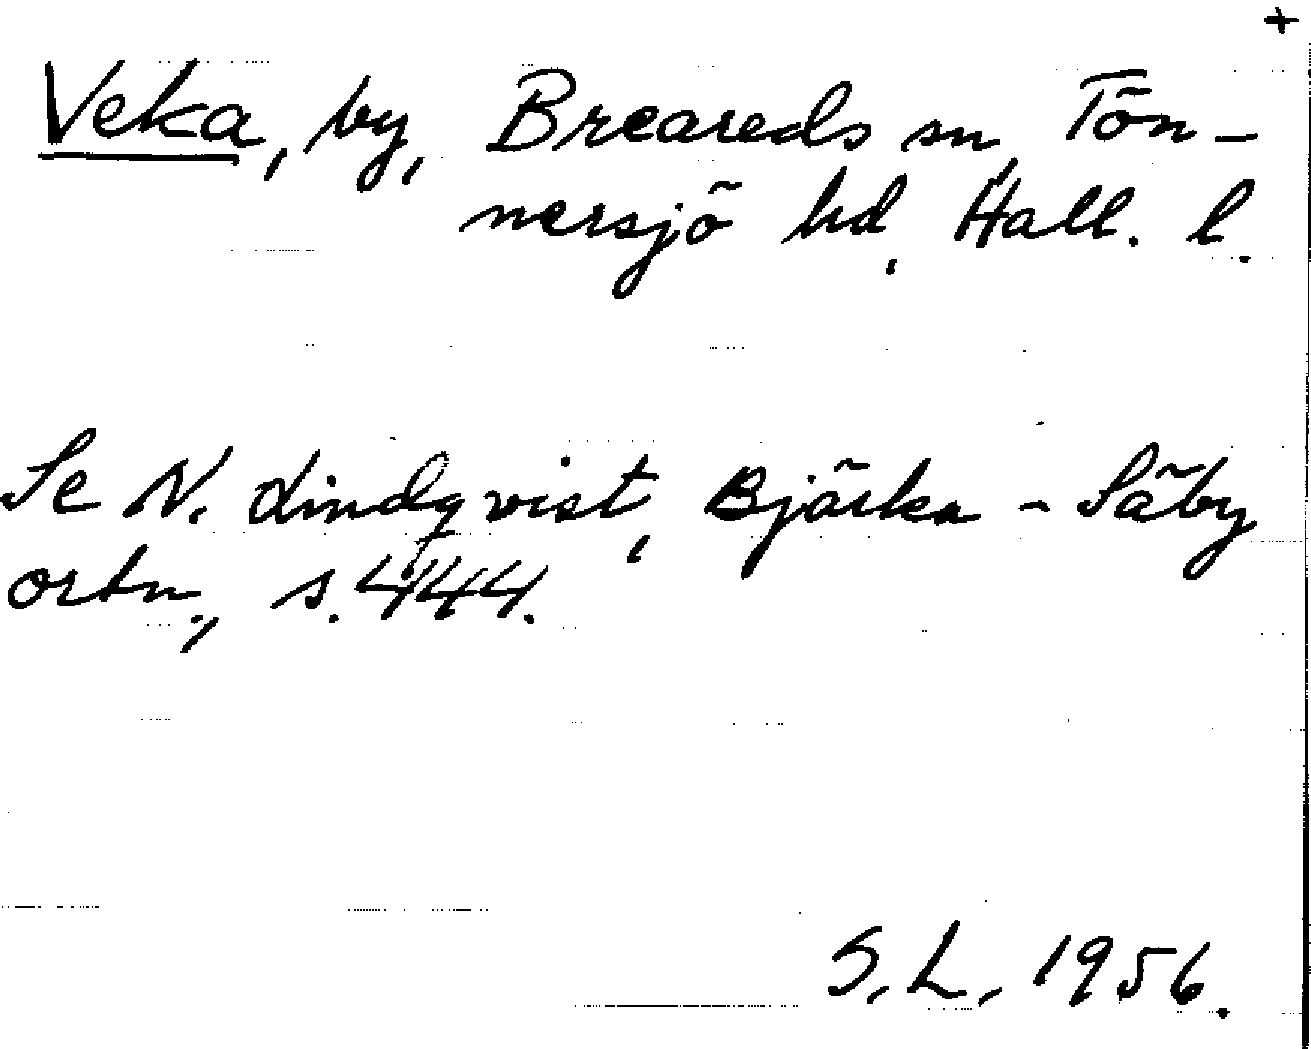 +
Veka, by, Breareds sn, Tön-
nersjö hd, Hall. l.
Se N. Lindqvist, Bjärka-Säby
ortn., s. 444.
S. L. 1956.